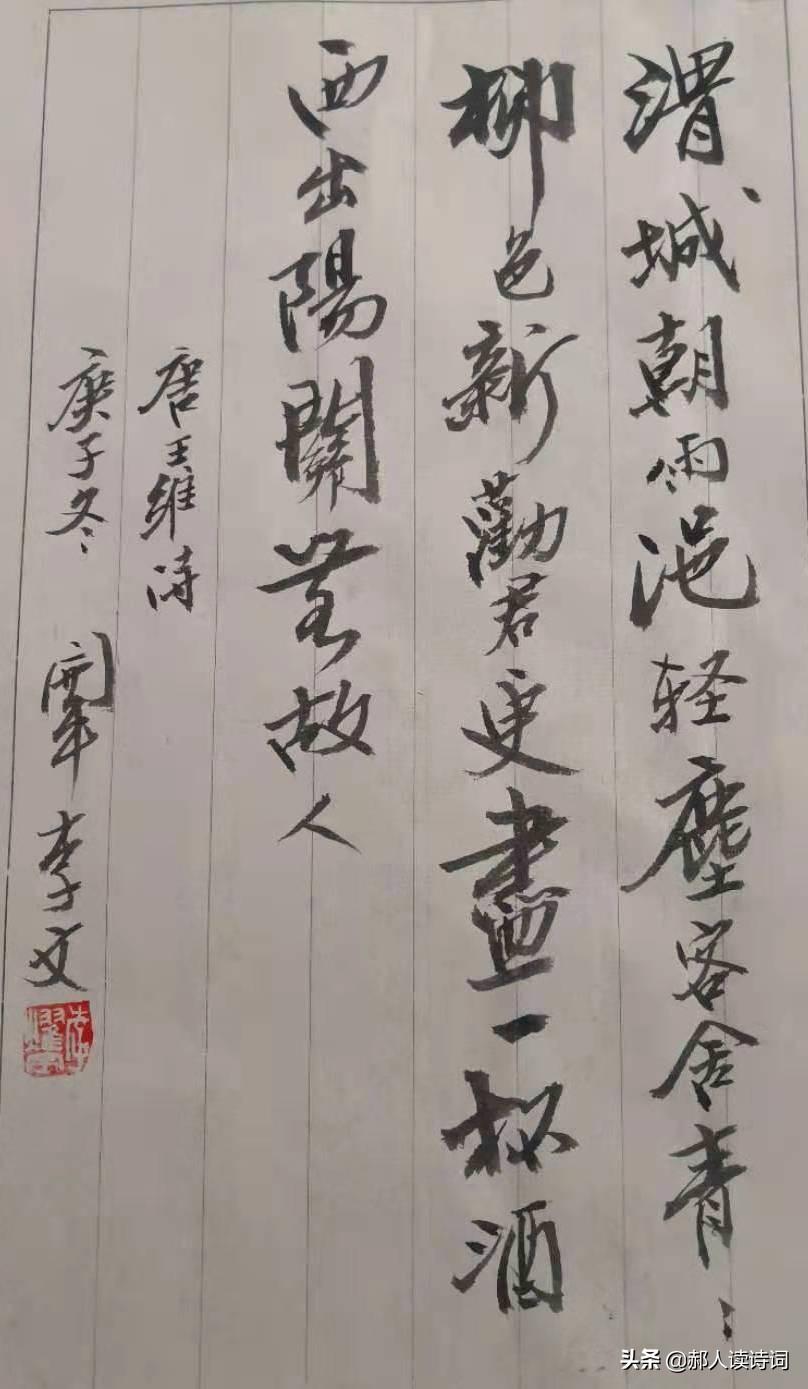 渭城朝雨浥轻塵客舍青:
柳色新勸君更盡一杯酒
西出陽關無故人
唐王維诗
庚子冬 李文
头条 @郝人读诗词